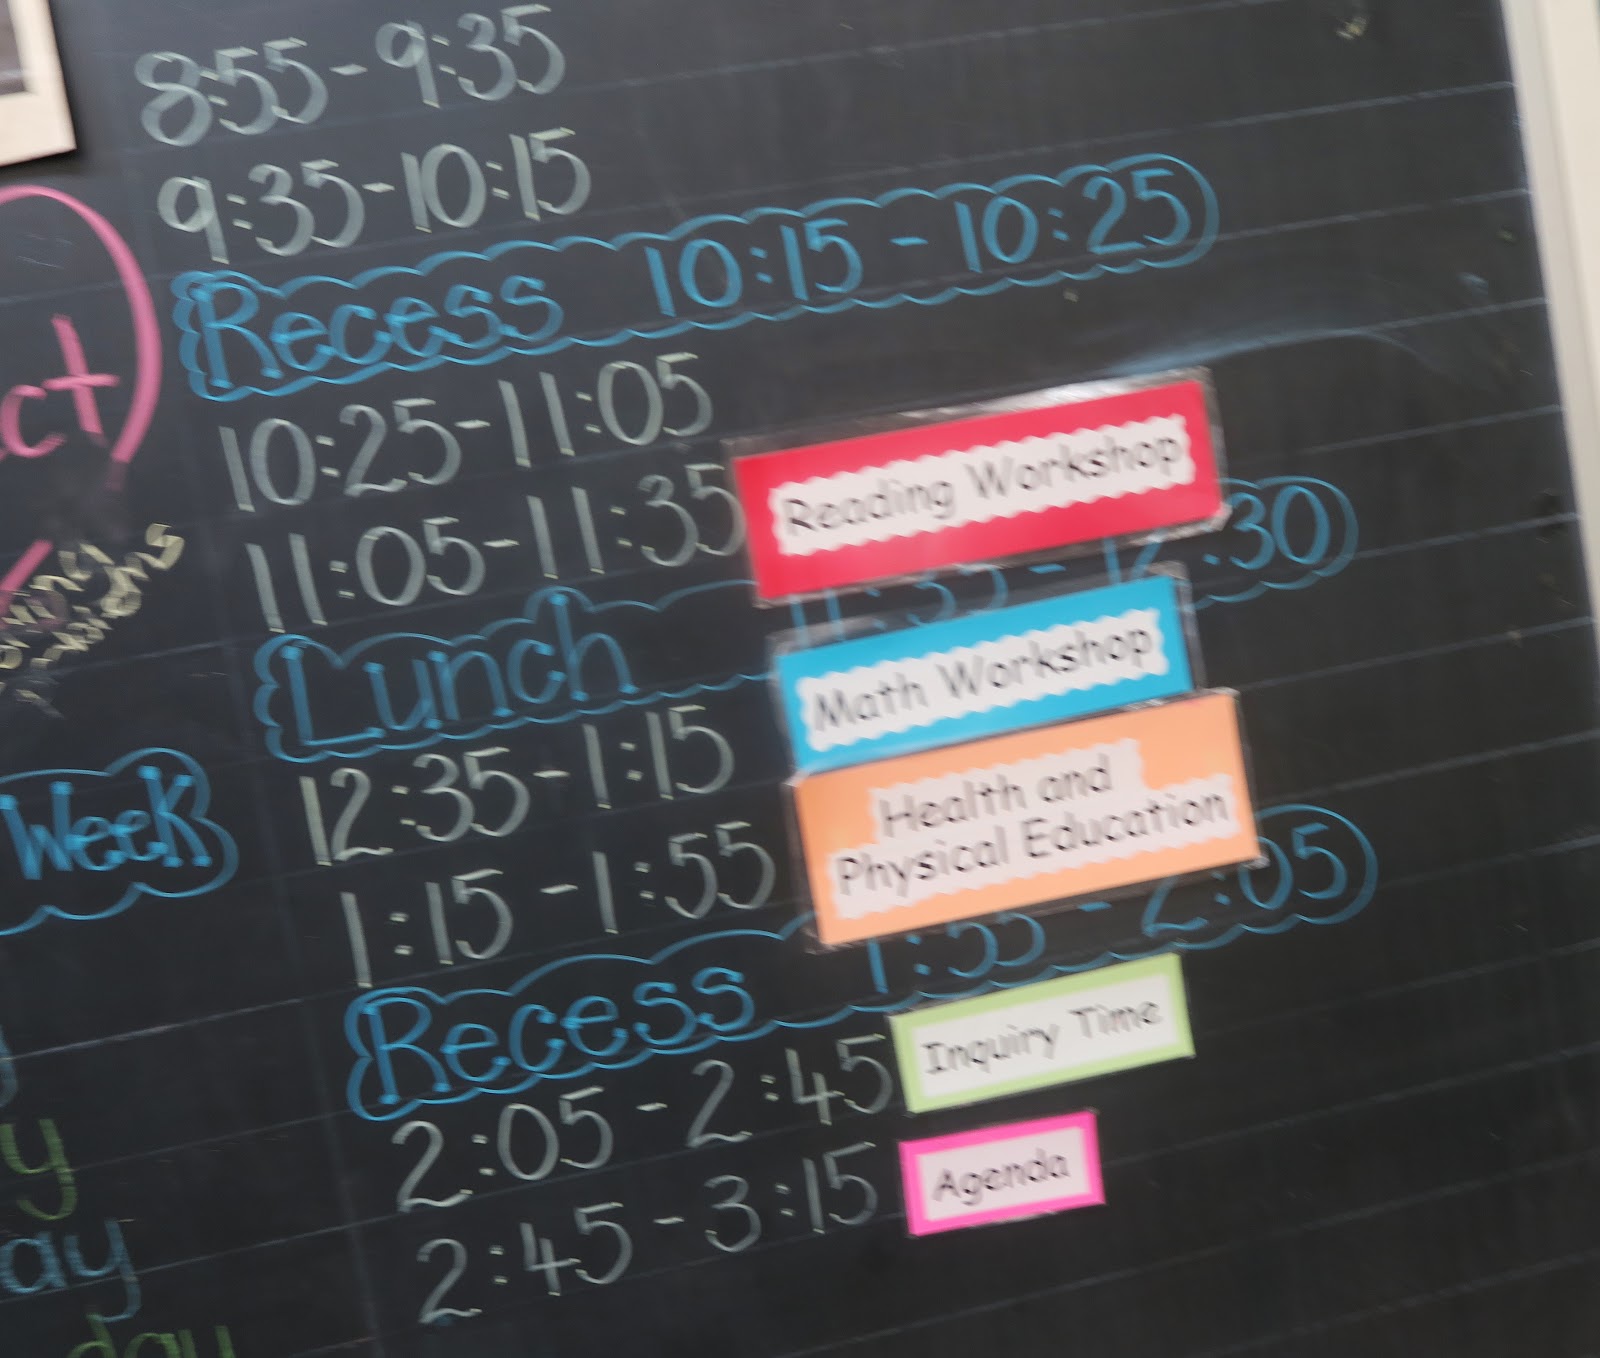 8:55 - 9:35
9:35 - 10:15
Recess 10:15 - 10:25
ct
10:25 - 11:05
11:05 - 11:35 Reading Workshop
Lunch 11:35 - 12:30
Math Workshop
Week
12:35 - 1:15
Health and
Physical Education
1:15 - 1:55
Recess 1:55 - 2:05
2:05 - 2:45 Inquiry Time
y
2:45 - 3:15 Agenda
ay
day